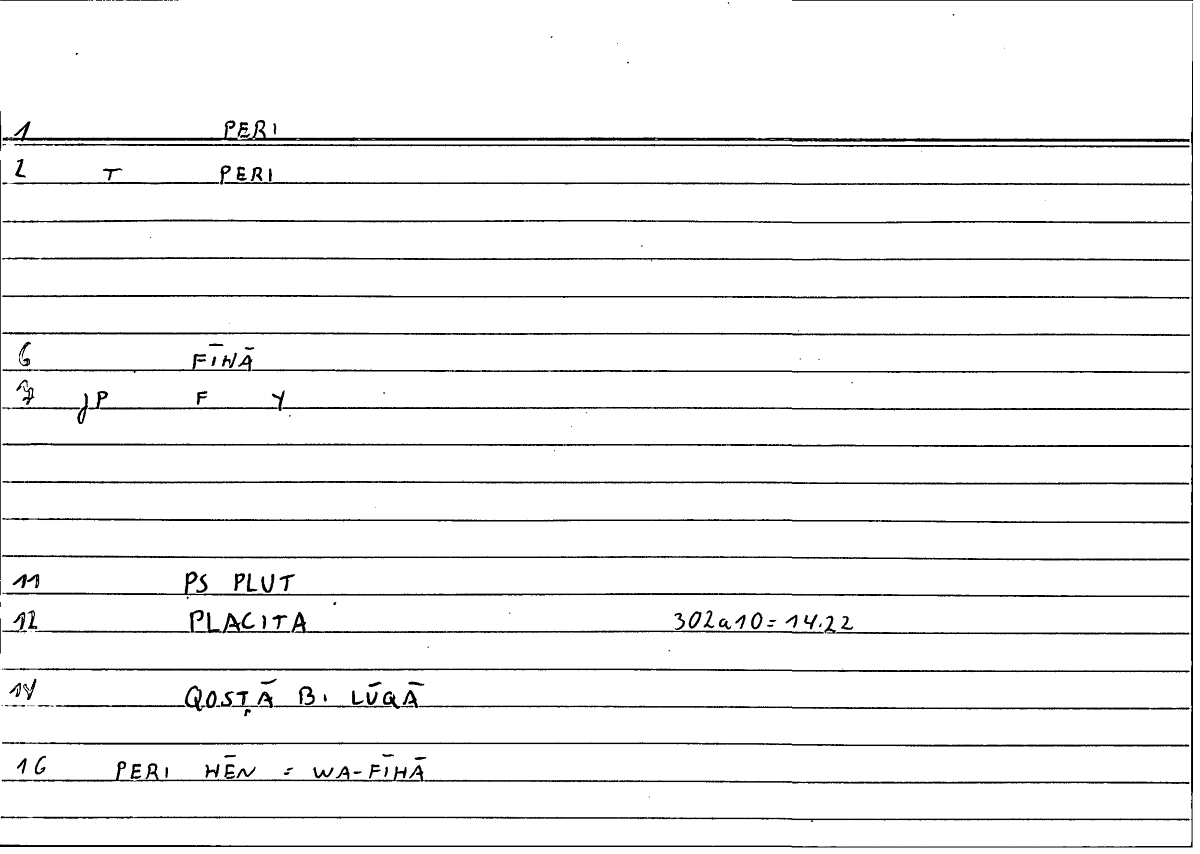 1 PERI
2 T PERI
6 FĪHĀ
7 jP F Y
11 PS PLUT
12 PLACITA 302a10=14.22
14 QOSṬĀ B. LŪQĀ
16 PERI HĒN = WA-FĪHĀ